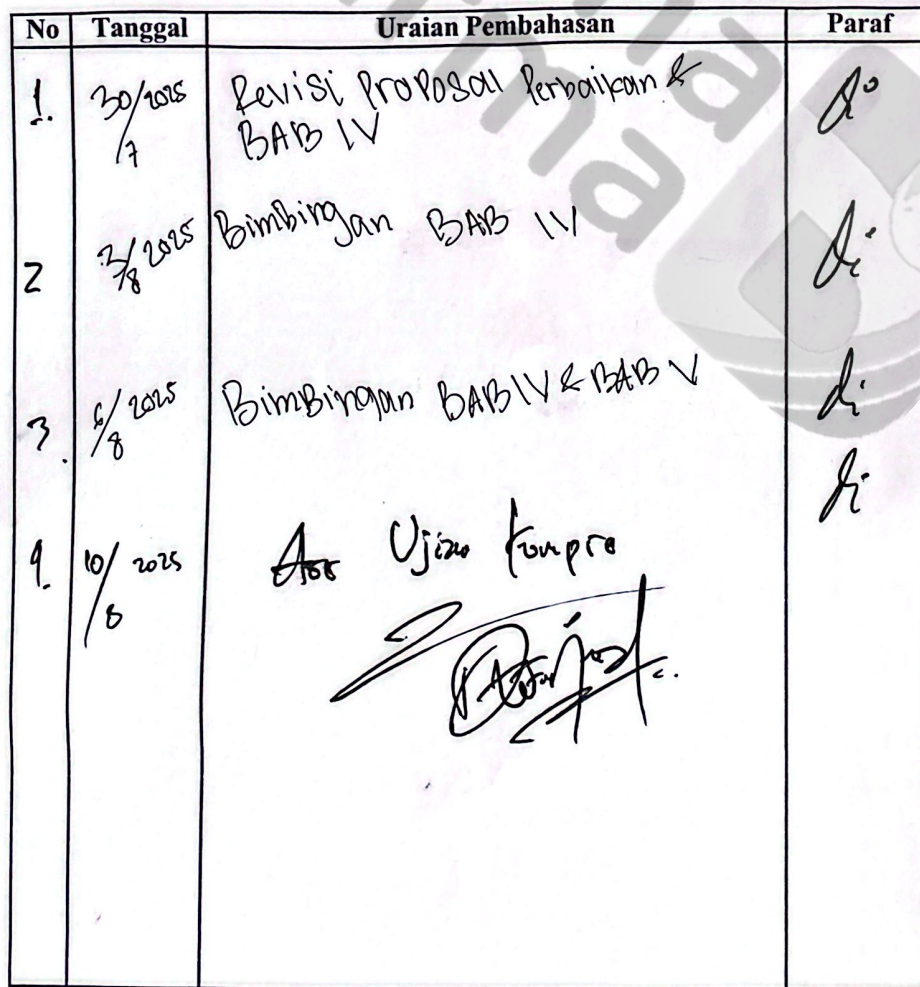 No Tanggal Uraian Pembahasan Paraf
1. 30/7 2025 Revisi Proposal Perbaikan &
BAB IV
2 2/8 2025 Bimbingan BAB IV
3. 6/8 2025 Bimbingan BAB IV & BAB V
4. 10/8 2025 Acc Ujian Kompre